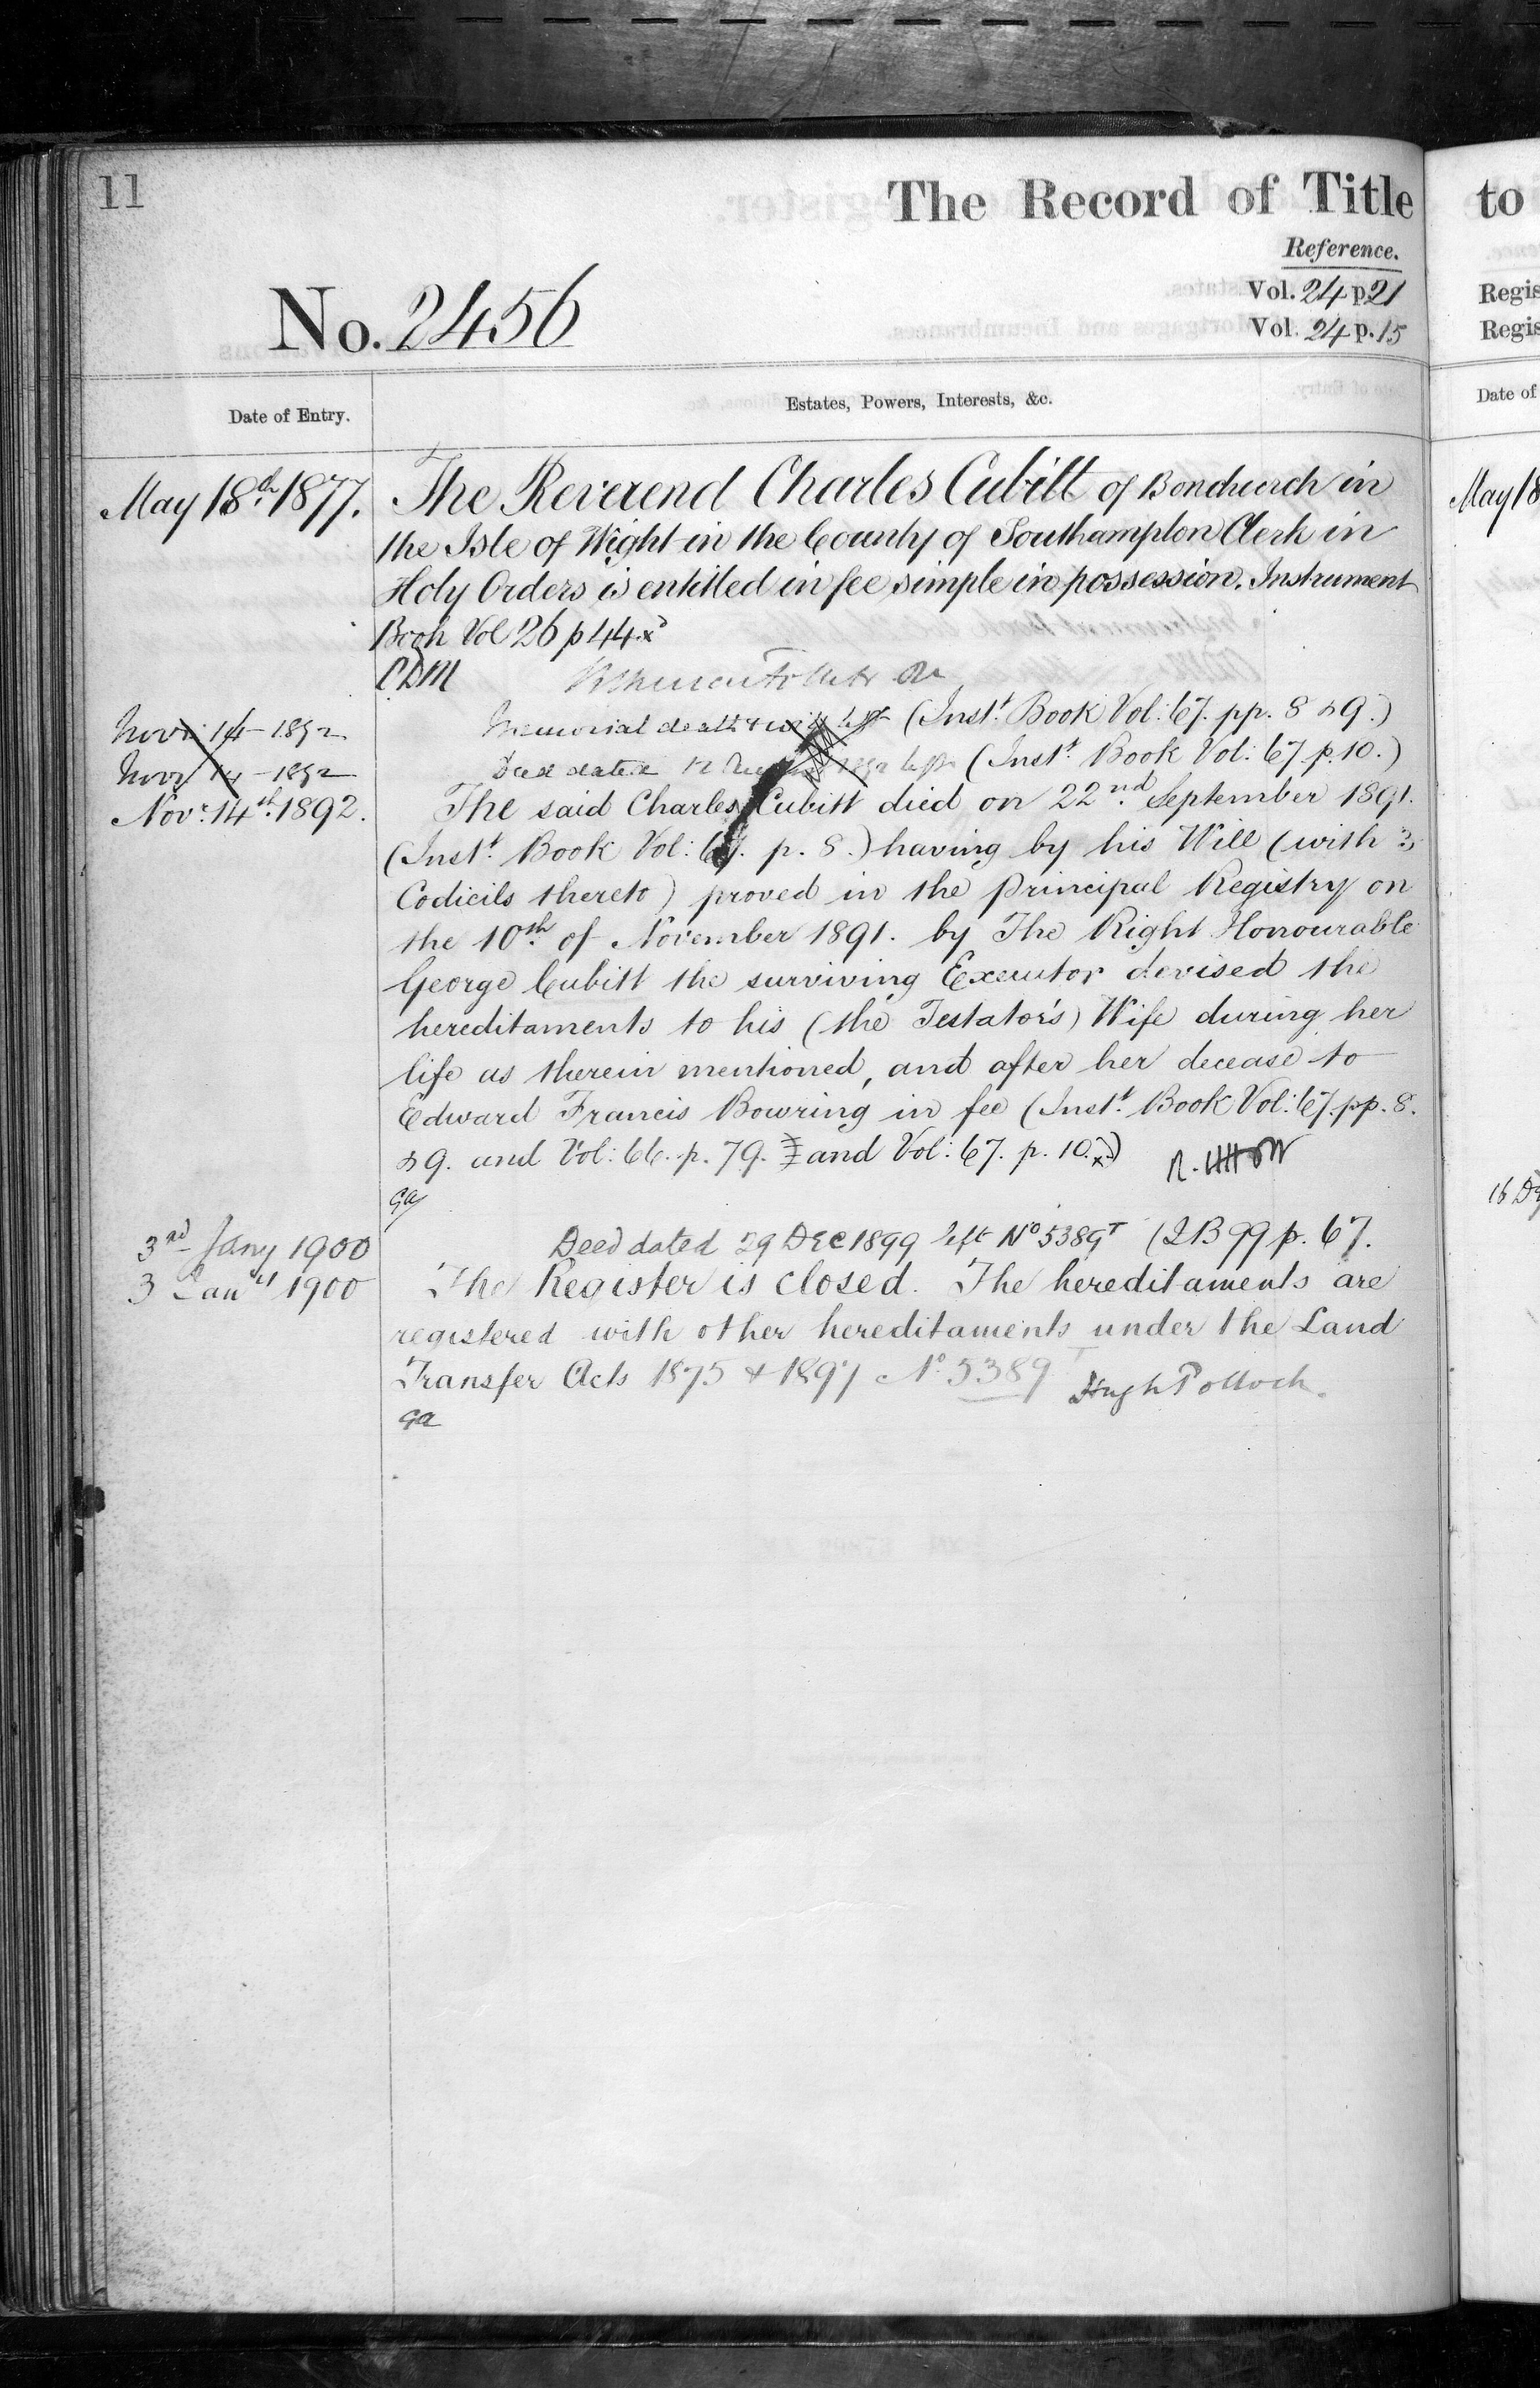 11
The Record of Title
Reference.
No. 2456
Vol. 24 p. 21
Vol. 24 p. 15
Date of Entry.
Estates, Powers, Interests, &c.
May 18th 1877.
The Reverend Charles Cubitt of Bonchurch in
the Isle of Wight in the County of Southampton Clerk in
Holy Orders is entitled in fee simple in possession. Instrument
Book Vol 26 p 44. x
CDM
Nov: 14 - 1892
Memorial death & will left (Inst.t Book Vol: 67. pp. 8 & 9.)
Nov 14 - 1892
Deed dated 12 1892 left (Inst.t Book Vol: 67 p. 10.)
Nov: 14th 1892.
The said Charles Cubitt died on 22nd September 1891.
(Inst.t Book Vol: 67. p. 8.) having by his Will (with 3
Codicils thereto) proved in the Principal Registry on
the 10th of November 1891. by The Right Honourable
George Cubitt the surviving Executor devised the
hereditaments to his (the Testator's) Wife during her
life as therein mentioned, and after her decease to
Edward Francis Bowring in fee (Inst.t Book Vol: 67. pp. 8.
& 9. and Vol: 66. p. 79. and Vol: 67. p. 10. x)
GA
3rd Jany 1900
Deed dated 29 Dec 1899 left No 5389T (IB 99 p. 67.
3 Jan 1900
The Register is closed. The hereditaments are
registered with other hereditaments under the Land
Transfer Acts 1875 & 1897 No. 5389T Hugh Pollock.
GA
to
Regis
Regis
Date of
May 18